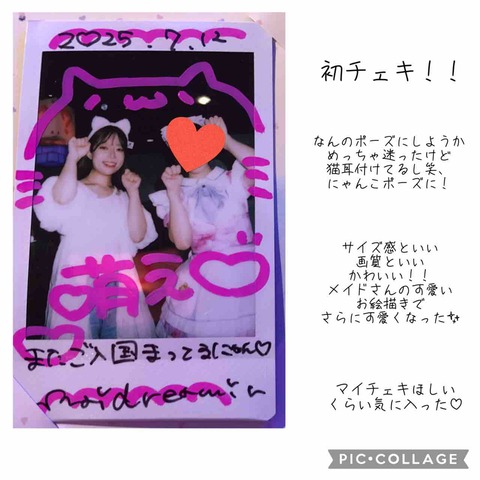 2025.7.12
萌え♡
またご入国まってるにゃん♡
maidreamin
初チェキ！！
なんのポーズにしようか
めっちゃ迷ったけど
猫耳付けてるし笑、
にゃんこポーズに！
サイズ感といい
画質といい
かわいい！！
メイドさんの可愛い
お絵描きで
さらに可愛くなった✨
マイチェキほしい
くらい気に入った♡
PIC•COLLAGE